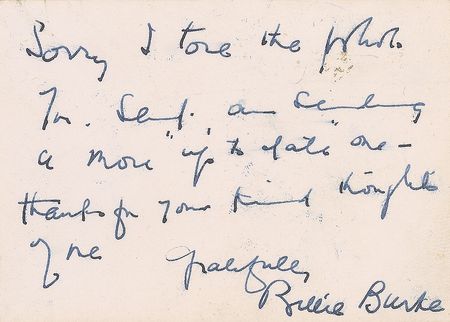 Sorry I tore the photo
You Sent, am Sending
a more "up to date" one -
thanks for your kind thoughts
of me
Gratefully
Billie Burke